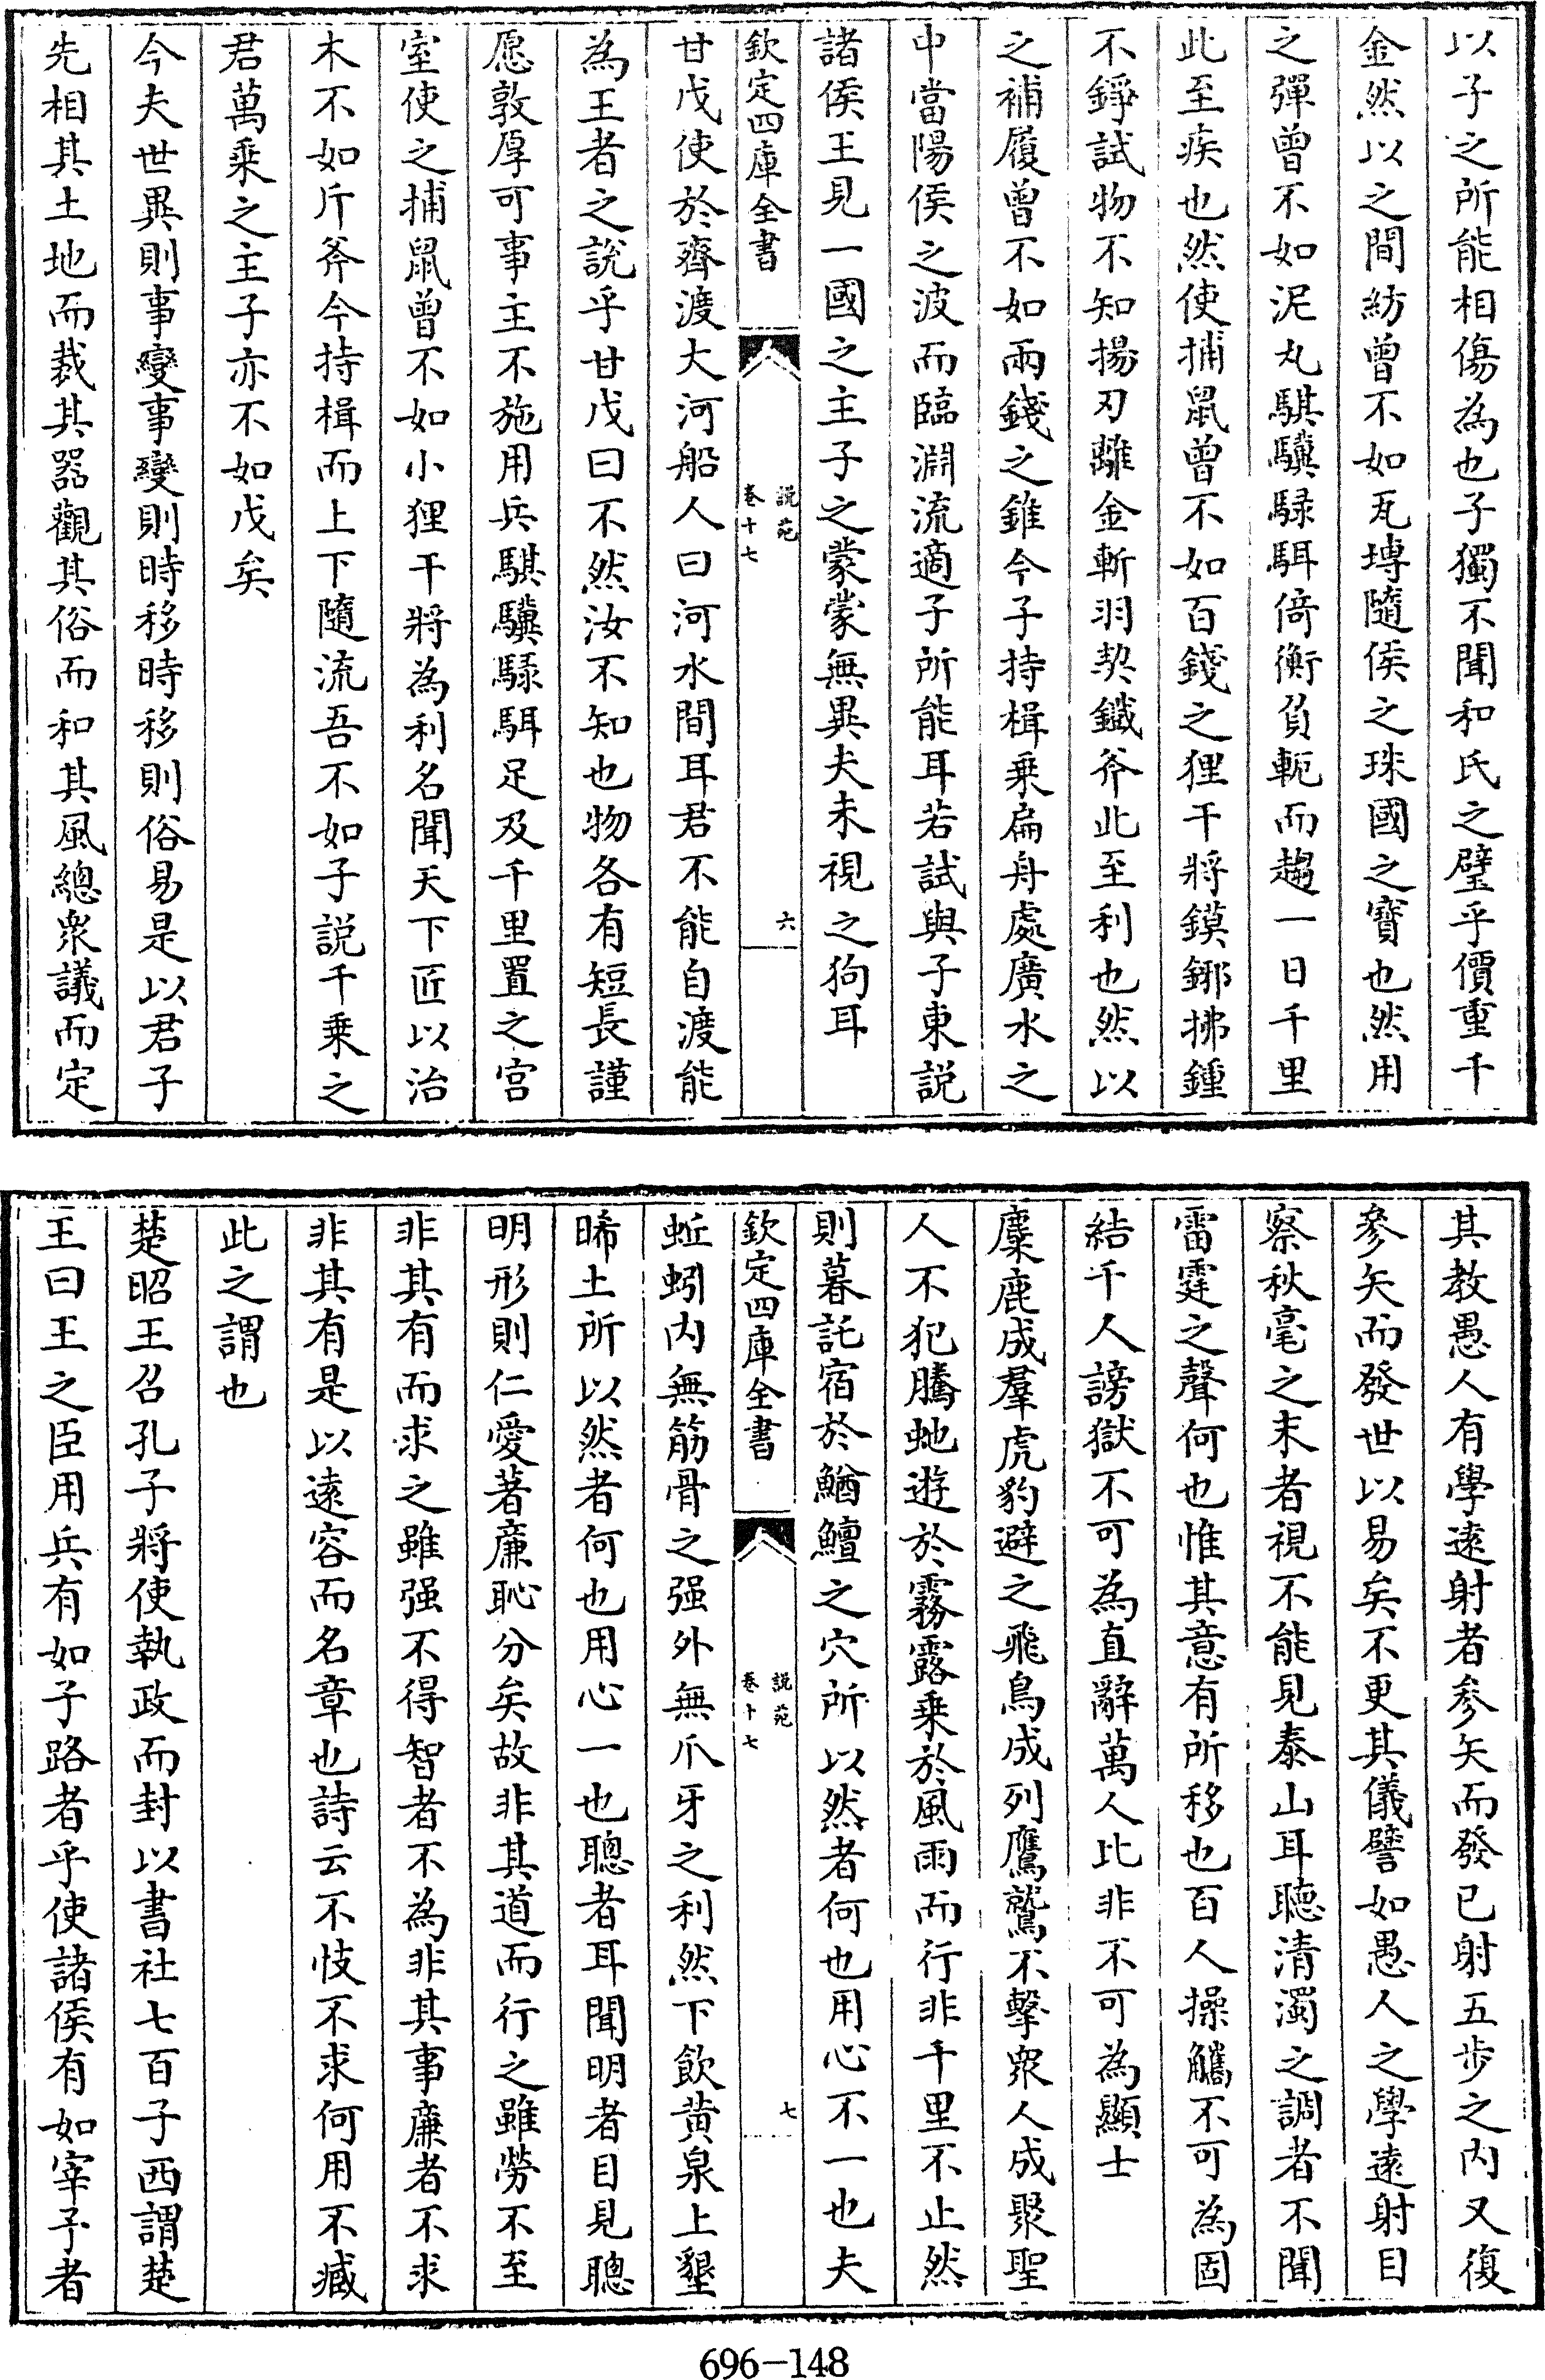 以子之所能相傷為也子獨不聞和氏之璧乎價重千
金然以之間紡曾不如瓦塼隨侯之珠國之寶也然用
之彈曾不如泥丸騏驥騄駬倚衡負軛而趨一日千里
此至疾也然使捕鼠曾不如百錢之狸干將鏌鋣拂鍾
不錚試物不知揚刃離金斬羽契鐵斧此至利也然以
之補履曾不如兩錢之錐今子持楫乗扁舟處廣水之
中當陽侯之波而臨淵流適子所能耳若試與子東説
諸侯王見一國之主子之蒙蒙無異夫未視之狗耳
欽定四庫全書
説苑
卷十七
六
甘戊使於齊渡大河船人曰河水間耳君不能自渡能
為王者之説乎甘戊曰不然汝不知也物各有短長謹
愿敦厚可事主不施用兵騏驥騄駬足及千里置之宫
室使之捕鼠曾不如小狸干將為利名聞天下匠以治
木不如斤斧今持楫而上下隨流吾不如子説千乗之
君萬乗之主子亦不如戊矣
今夫世異則事變事變則時移時移則俗易是以君子
先相其土地而裁其器觀其俗而和其風總衆議而定
其教愚人有學逺射者參矢而發已射五步之内又復
參矢而發世以易矣不更其儀譬如愚人之學逺射目
察秋毫之末者視不能見泰山耳聽清濁之調者不聞
雷霆之聲何也惟其意有所移也百人操觿不可為固
結千人謗獄不可為直辭萬人比非不可為顯士
麋鹿成羣虎豹避之飛鳥成列鷹鷲不擊衆人成聚聖
人不犯騰虵遊於霧露乗於風雨而行非千里不止然
則暮託宿於鰌鱣之穴所以然者何也用心不一也夫
欽定四庫全書
説苑
卷十七
七
蚯蚓内無筋骨之强外無爪牙之利然下飲黄泉上墾
晞土所以然者何也用心一也聰者耳聞明者目見聰
明形則仁愛著廉恥分矣故非其道而行之雖勞不至
非其有而求之雖强不得智者不為非其事廉者不求
非其有是以逺容而名章也詩云不忮不求何用不臧
此之謂也
楚昭王召孔子將使執政而封以書社七百子西謂楚
王曰王之臣用兵有如子路者乎使諸侯有如宰予者
696-148